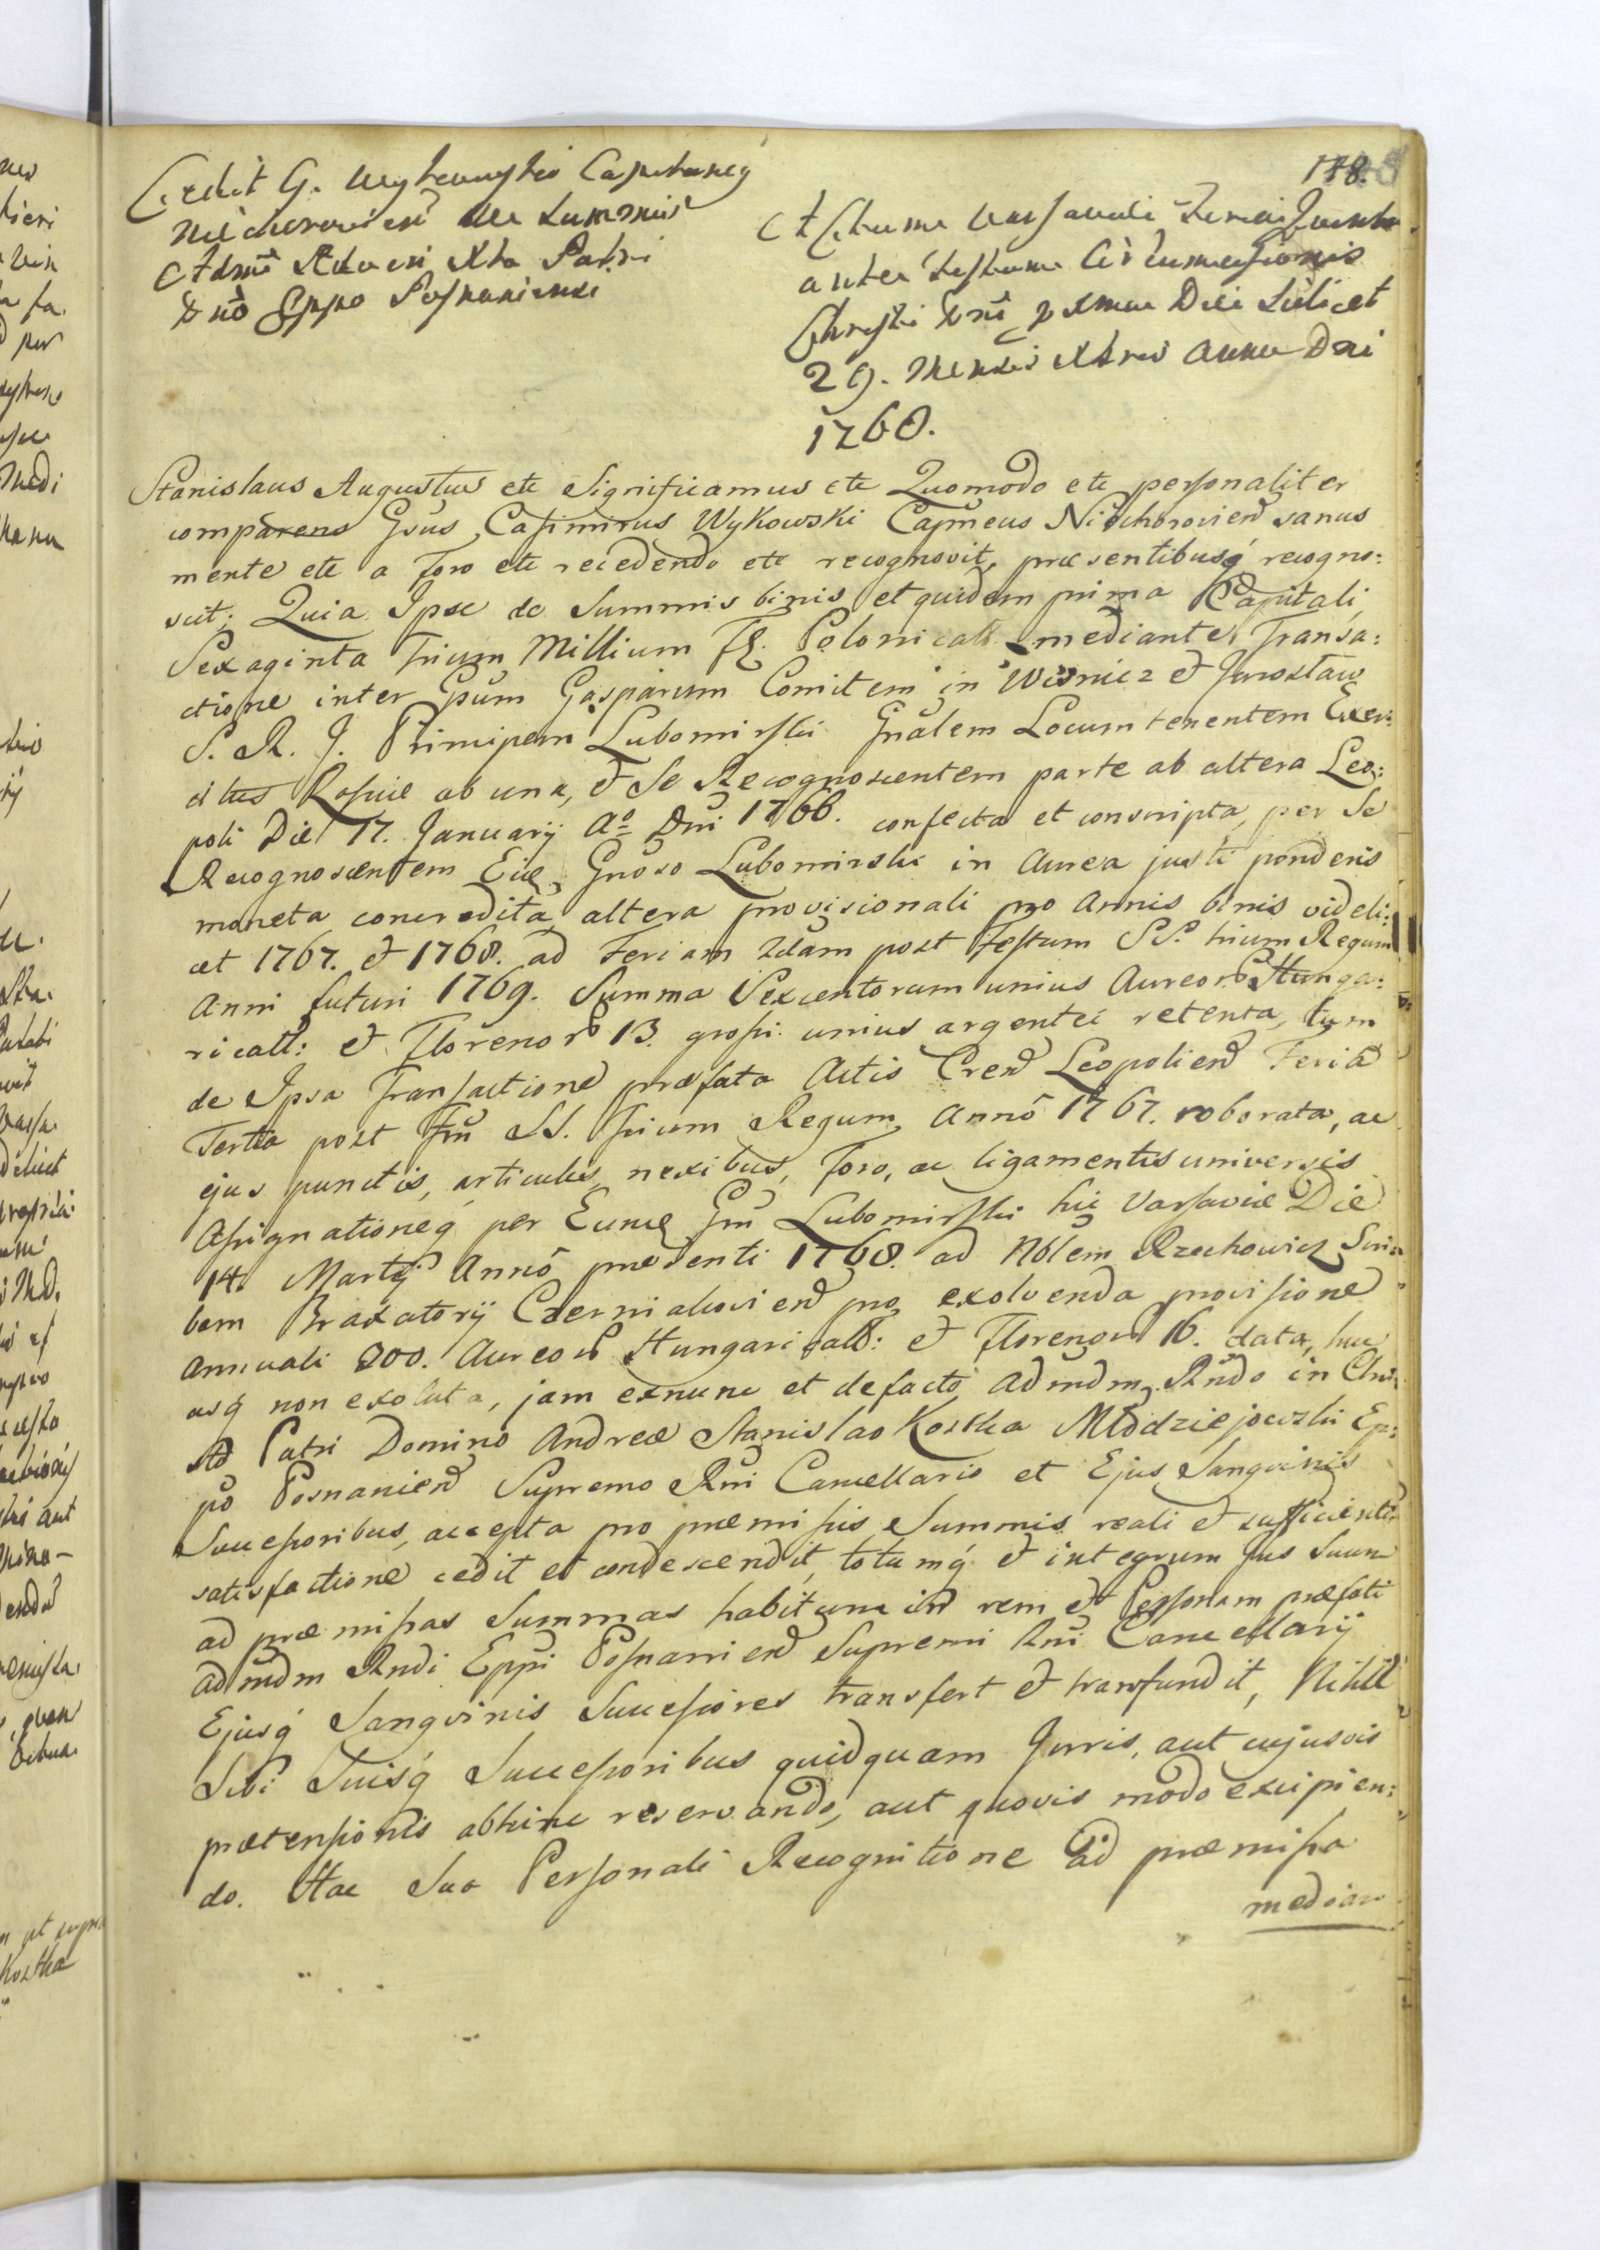 118
Cedit G. Wykowski Capitaneq
Niechorovien de Summis
Admo Rdo in Xto Patri
Dno Eppo Posnaniensi
Actum Varsaviae Feria Quinta
ante Festum Circumcisionis
Christi Dni proxima Die Scilicet
29. Mensis Xbris Anno Dni
1768.
Stanislaus Augustus etc Significamus etc Quomodo etc personaliter
comparens Gsus Casimirus Wykowski Capneus Niechorovien sanus
mente etc a Foro etc recedendo etc recognovit, praesentibusq recogno:
scit; Quia Ipse de Summis binis et quidem prima Capitali,
Sexaginta trium Millium Fl. Polonicall mediante Transa:
ctione inter Gsum Gasparum Comitem in Wisnicz et Jaroslaw
S. R. J. Principem Lubomirski Gnalem Locumtenentem Exer:
citus Rossiae ab una, et Se Recognoscentem parte ab altera Leo:
poli Die 17. Januarij Ao Dni 1766. confecta et conscripta, per Se
Recognoscentem Eidem Gnoso Lubomirski in Aurea justi ponderis
moneta concredita, altera provisionali pro Annis binis videli:
cet 1767. et 1768. ad Feriam 2dam post Festum SS. trium Regum
Anni futuri 1769. Summa Sexcentorum unius Aureor Hunga:
ricall: et Florenor 13. grossi unius argentei retenta, tum
de Ipsa Transactione praefata Actis Cren Leopolien Feria
Tertia post Fm SS. trium Regum Anno 1767. roborata, ac
ejus punctis, articulis, nexibus, foro, ac ligamentis universis
Assignationeq per Eund Gm Lubomirski hic Varsaviae Die
14. Martij Anno praesenti 1768. ad Nblem Rzechowicz Scri:
bam Braxatorij Czerniakovien pro exolvenda provisione
Annuali 300. Aureor Hungaricall: et Florenor 16. data, huc
usq non exoluta, jam exnunc et defacto Admdm Rndo in Chri:
sto Patri Domino Andreae Stanislao Kostka Młodziejowski Ep:
po Posnanien Supremo Rni Cancellario et Ejus Sangvinis
Successoribus, accepta pro praemissis Summis reali et sufficienti
satisfactione cedit et condescendit, totumq et integrum Jus Suum
ad praemissas Summas habitum in rem et Personam praefati
admdm Rndi Eppi Posnanien Supremi Rni Cancellarij
Ejusq Sangvinis Successores transfert et transfundit, Nihil
Sibi Suisq Successoribus quidquam Juris, aut cujusvis
praetensionis abhinc reservando, aut quovis modo excipien:
do. Hac Sua Personali Recognitione ad praemissa
median